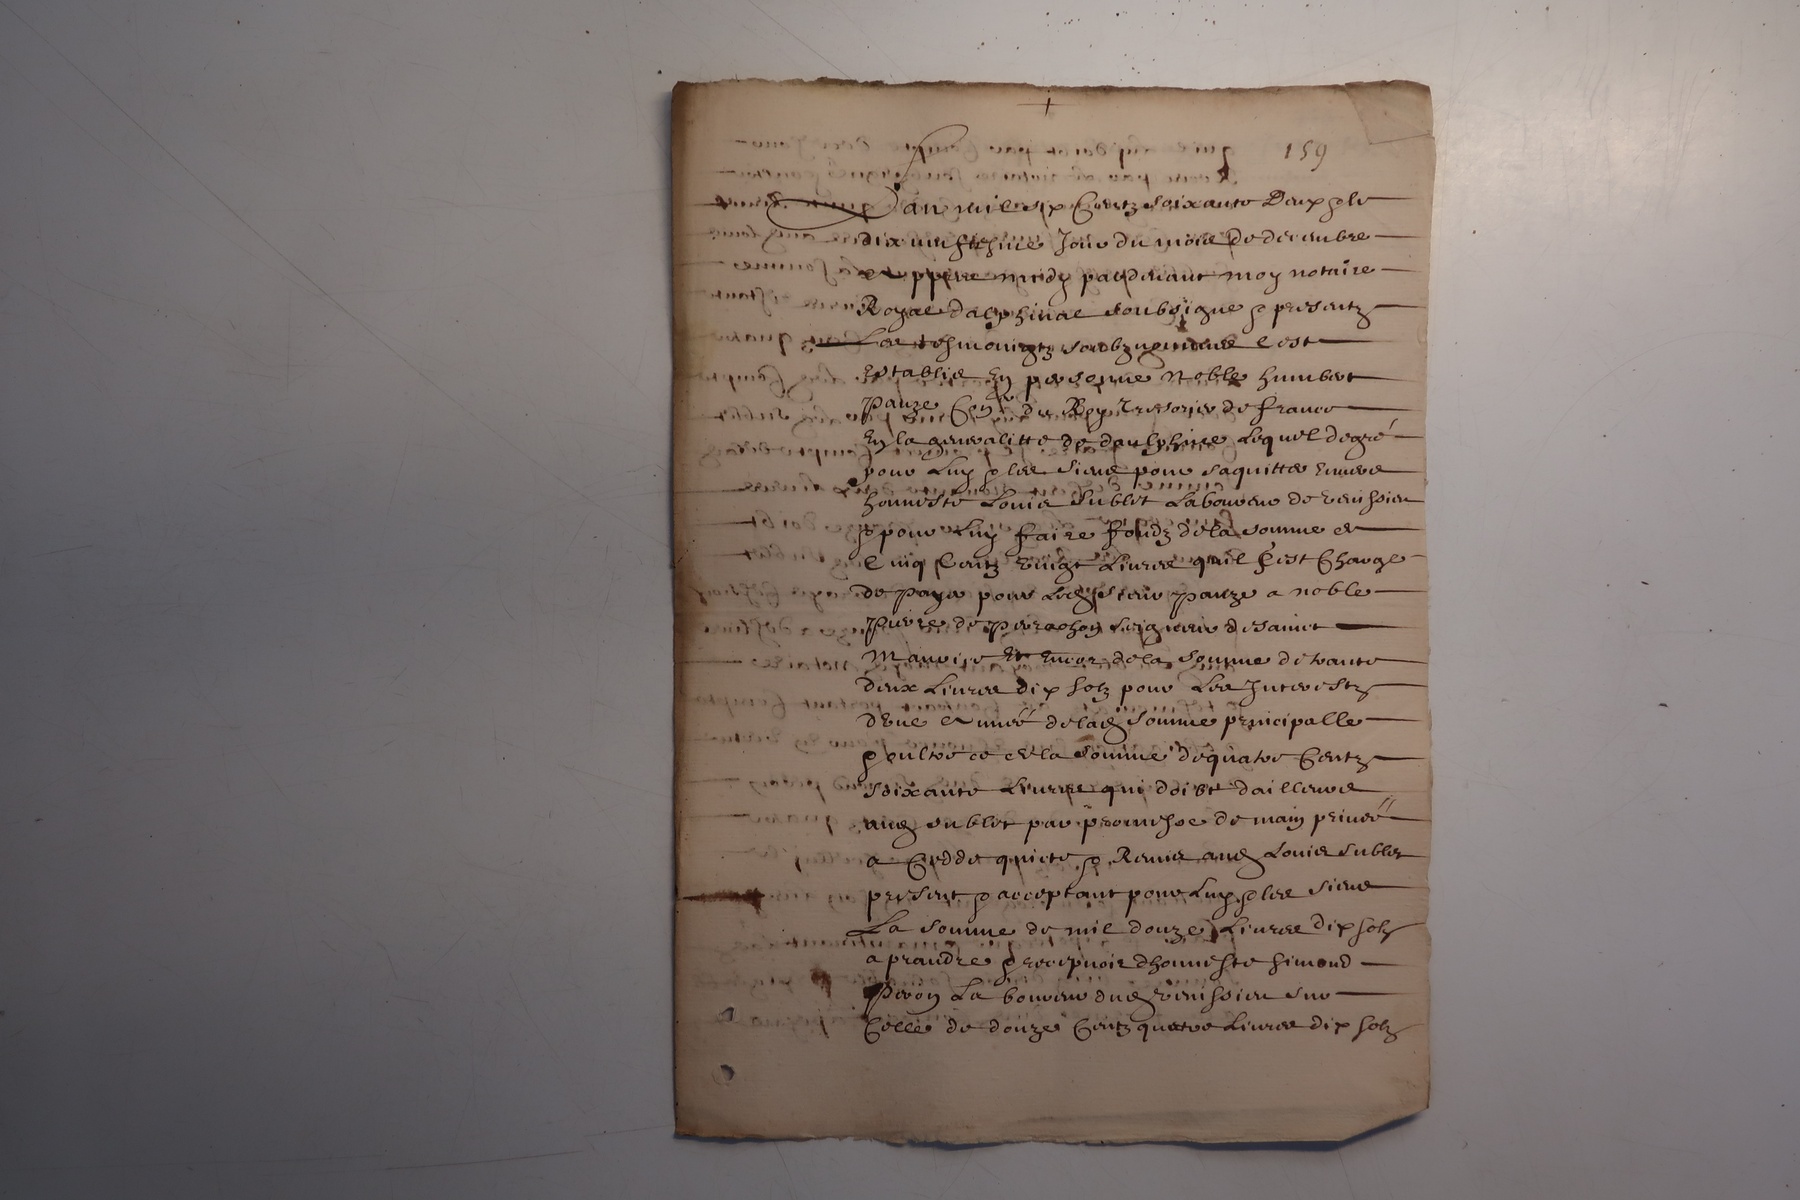 159
Lan mil six Centz soixante Deux & le
dix neufviesme Jour du mois de decembre
appres midy pardevant moy notaire
Royal dalphinal soubsigne & presentz
Les tesmoingtz soubz nommes C est
Establis En personne Noble humbert
Panze Con.er du Roy Tresorier de france
En la generalitte de daulphine Lequel de gré
pour Luy & les siens pour saquitter Envers
honneste Louis Sublet Laboureur de venissieu
& pour Luy faire fondz de la somme de
Cinq Centz vingt Livres quil sest Charge
de payer pour Led sieur Panze a noble
Pierre de Perrachon Seigneur de sainct
Maurice Et Encor de la somme de trante
deux Livres dix solz pour Les Interestz
dune année de lad somme principalle
& oultre ce de la somme de quatre Centz
soixante Livres qui doibt dailleurs
aud Sublet par promesse de main privée
a Cedde quicte & Remis aud Louis Sublet
present & acceptant pour Luy & les siens
La somme de mil douze Livres dix solz
a prandre & recepvoir dhonneste simond
Peron La boureur dud venissieu sur
Celle de douze Centz quatre Livres dix solz